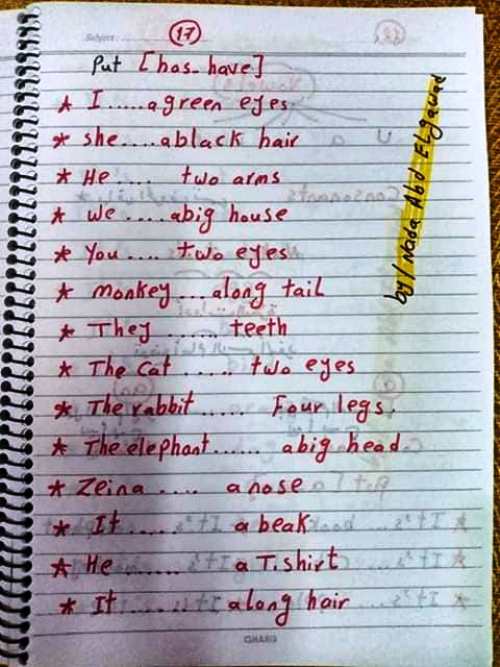 Subject:
17
Put [has_have]
* I.....a green eyes.
* she....a black hair
* He .... two arms
* we ....abig house
* You .... two eyes
* monkey ...along tail
* They ...... teeth
* The cat ..... two eyes
* The rabbit ..... Four legs.
* The elephant...... abig head.
* Zeina .... a nose
* It ...... a beak
* He ....... a T.shirt
* It ...... along hair
by/Nada Abd Elgawad